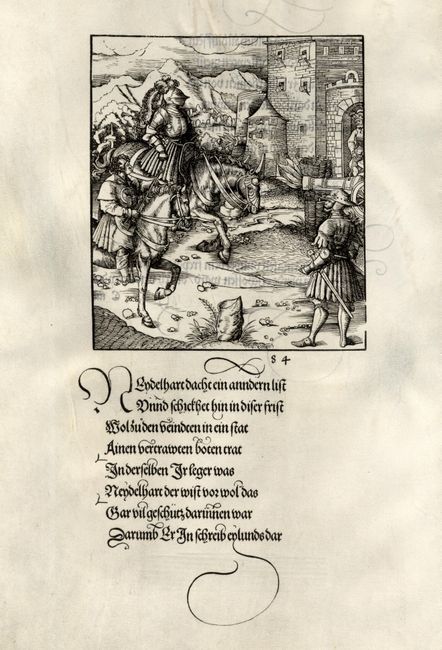 84
Neydelhart dacht ein anndern list
Vnnd schickhet hin in diser frist
Wol zu den veindten in ein stat
Ainen vertrawten boten trat
In derselben Ir leger was
Neydelhart der wist vor wol das
Gar vil geschütz darinnen war
Darumb Er In schreib eylunds dar